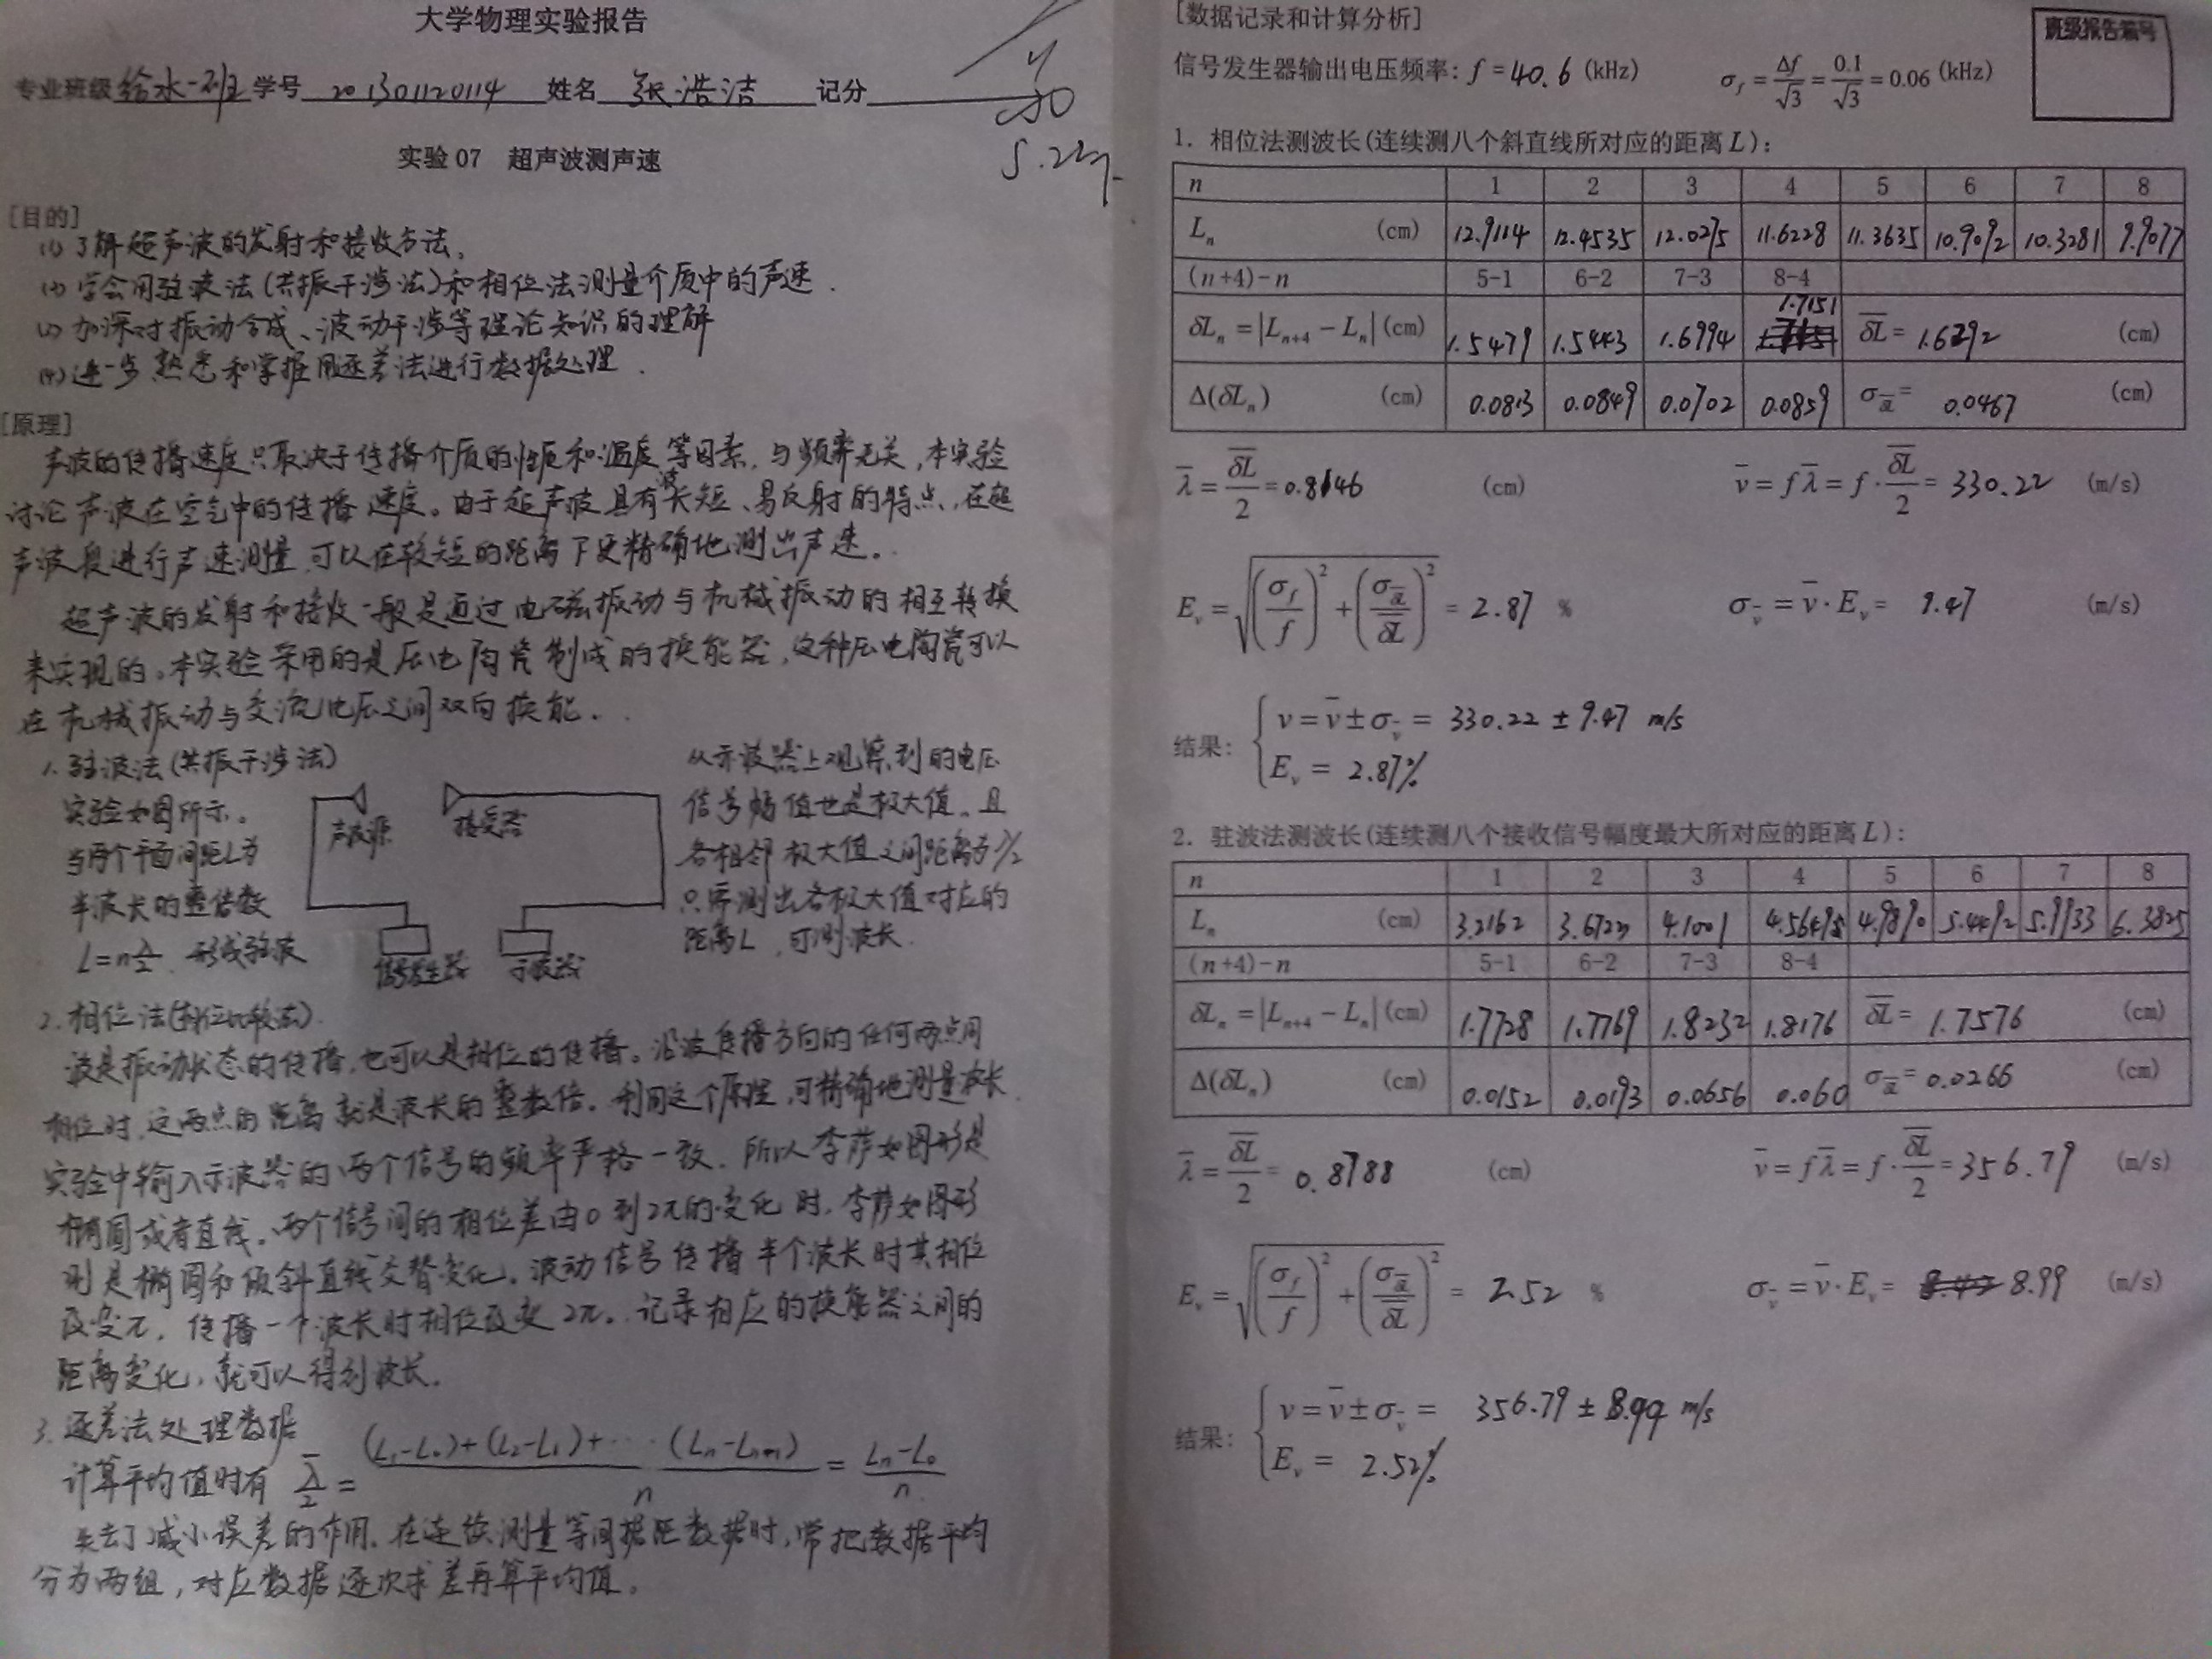 大学物理实验报告
专业班级 给水一班 学号 201301120114 姓名 张浩洁 记分
实验 07 超声波测声速
5.22
[目的]
(1) 了解超声波的发射和接收方法。
(2) 学会用驻波法(共振干涉法)和相位法测量介质中的声速.
(3) 加深对振动合成、波动干涉等理论知识的理解
(4) 进一步熟悉和掌握用逐差法进行数据处理.
[原理]
声波的传播速度只取决于传播介质的性质和温度等因素,与频率无关,本实验
讨论声波在空气中的传播速度。由于超声波具有波长短、易反射的特点,在超
声波段进行声速测量,可以在较短的距离下更精确地测出声速。
超声波的发射和接收一般是通过电磁振动与机械振动的相互转换
来实现的。本实验采用的是压电陶瓷制成的换能器,这种压电陶瓷可以
在机械振动与交流电压之间双向换能.
1. 驻波法(共振干涉法)
实验如图所示。
当两个平面间距L为
半波长的整倍数
L=nλ/2 形成驻波
声波源
接受器
信号发生器
示波器
从示波器上观察到的电压
信号幅值也是极大值。且
各相邻极大值之间距离为λ/2
只需测出各极大值对应的
距离L,可测波长.
2. 相位法(相位比较法)
波是振动状态的传播,也可以是相位的传播。沿波传播方向的任何两点同
相位时,这两点的距离就是波长的整数倍。利用这个原理,可精确地测量波长.
实验中输入示波器的两个信号的频率严格一致.所以李萨如图形是
椭圆或者直线。两个信号间的相位差由0到2π的变化时,李萨如图形
则是椭圆和倾斜直线交替变化。波动信号传播半个波长时其相位
改变π,传播一个波长时相位改变2π。记录相应的换能器之间的
距离变化,就可以得到波长.
3. 逐差法处理数据
计算平均值时有 λ̄/2 = ((L₁-L₀)+(L₂-L₁)+… (Lₙ-Lₙ₋₁))/n = (Lₙ-L₀)/n
失去了减小误差的作用.在连续测量等间据距数据时,常把数据平均
分为两组,对应数据逐次求差再算平均值。
[数据记录和计算分析]
班级报告编号
信号发生器输出电压频率: f = 40.6 (kHz) σ_f = Δf/√3 = 0.1/√3 = 0.06 (kHz)
1. 相位法测波长(连续测八个斜直线所对应的距离 L):
n 1 2 3 4 5 6 7 8
Lₙ (cm) 12.9114 12.4535 12.0275 11.6228 11.3635 10.9092 10.3281 9.9077
(n+4)-n 5-1 6-2 7-3 8-4
δLₙ = |Lₙ₊₄ - Lₙ| (cm) 1.5479 1.5443 1.6994 1.7151 δL̄ = 1.6292 (cm)
Δ(δLₙ) (cm) 0.0813 0.0849 0.0702 0.0859 σ_δL̄ = 0.0467 (cm)
λ̄ = δL̄/2 = 0.8146 (cm) v̄ = fλ̄ = f·δL̄/2 = 330.22 (m/s)
E_v = √((σ_f/f)² + (σ_δL̄/δL̄)²) = 2.87 % σ_v̄ = v̄·E_v = 9.47 (m/s)
结果: v = v̄ ± σ_v̄ = 330.22 ± 9.47 m/s
E_v = 2.87%
2. 驻波法测波长(连续测八个接收信号幅度最大所对应的距离 L):
n 1 2 3 4 5 6 7 8
Lₙ (cm) 3.2162 4.1001 4.9890 5.4492 5.9233 6.3825
(n+4)-n 5-1 6-2 7-3 8-4
δLₙ = |Lₙ₊₄ - Lₙ| (cm) 1.7728 1.7769 1.8232 1.8176 δL̄ = 1.7576 (cm)
Δ(δLₙ) (cm) 0.0152 0.0193 0.0656 0.060 σ_δL̄ = 0.0266 (cm)
λ̄ = δL̄/2 = 0.8788 (cm) v̄ = fλ̄ = f·δL̄/2 = 356.79 (m/s)
E_v = √((σ_f/f)² + (σ_δL̄/δL̄)²) = 2.52 % σ_v̄ = v̄·E_v = 8.99 (m/s)
结果: v = v̄ ± σ_v̄ = 356.79 ± 8.99 m/s
E_v = 2.52%